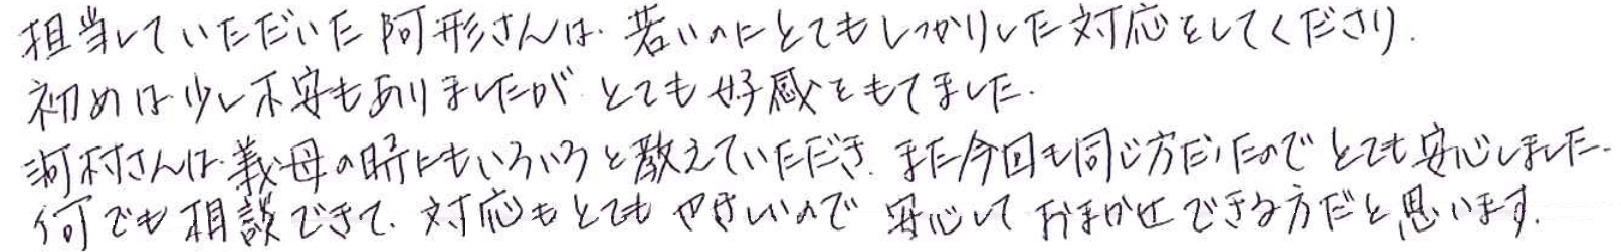 担当していただいた阿形さんは、若いのにとてもしっかりした対応をしてくださり、
初めは少し不安もありましたが、とても好感をもてました。
河村さんは、義母の時にもいろいろと教えていただき、また今回も同じ方だったのでとても安心しました。
何でも相談できて、対応もとてもやさしいので安心しておまかせできる方だと思います。